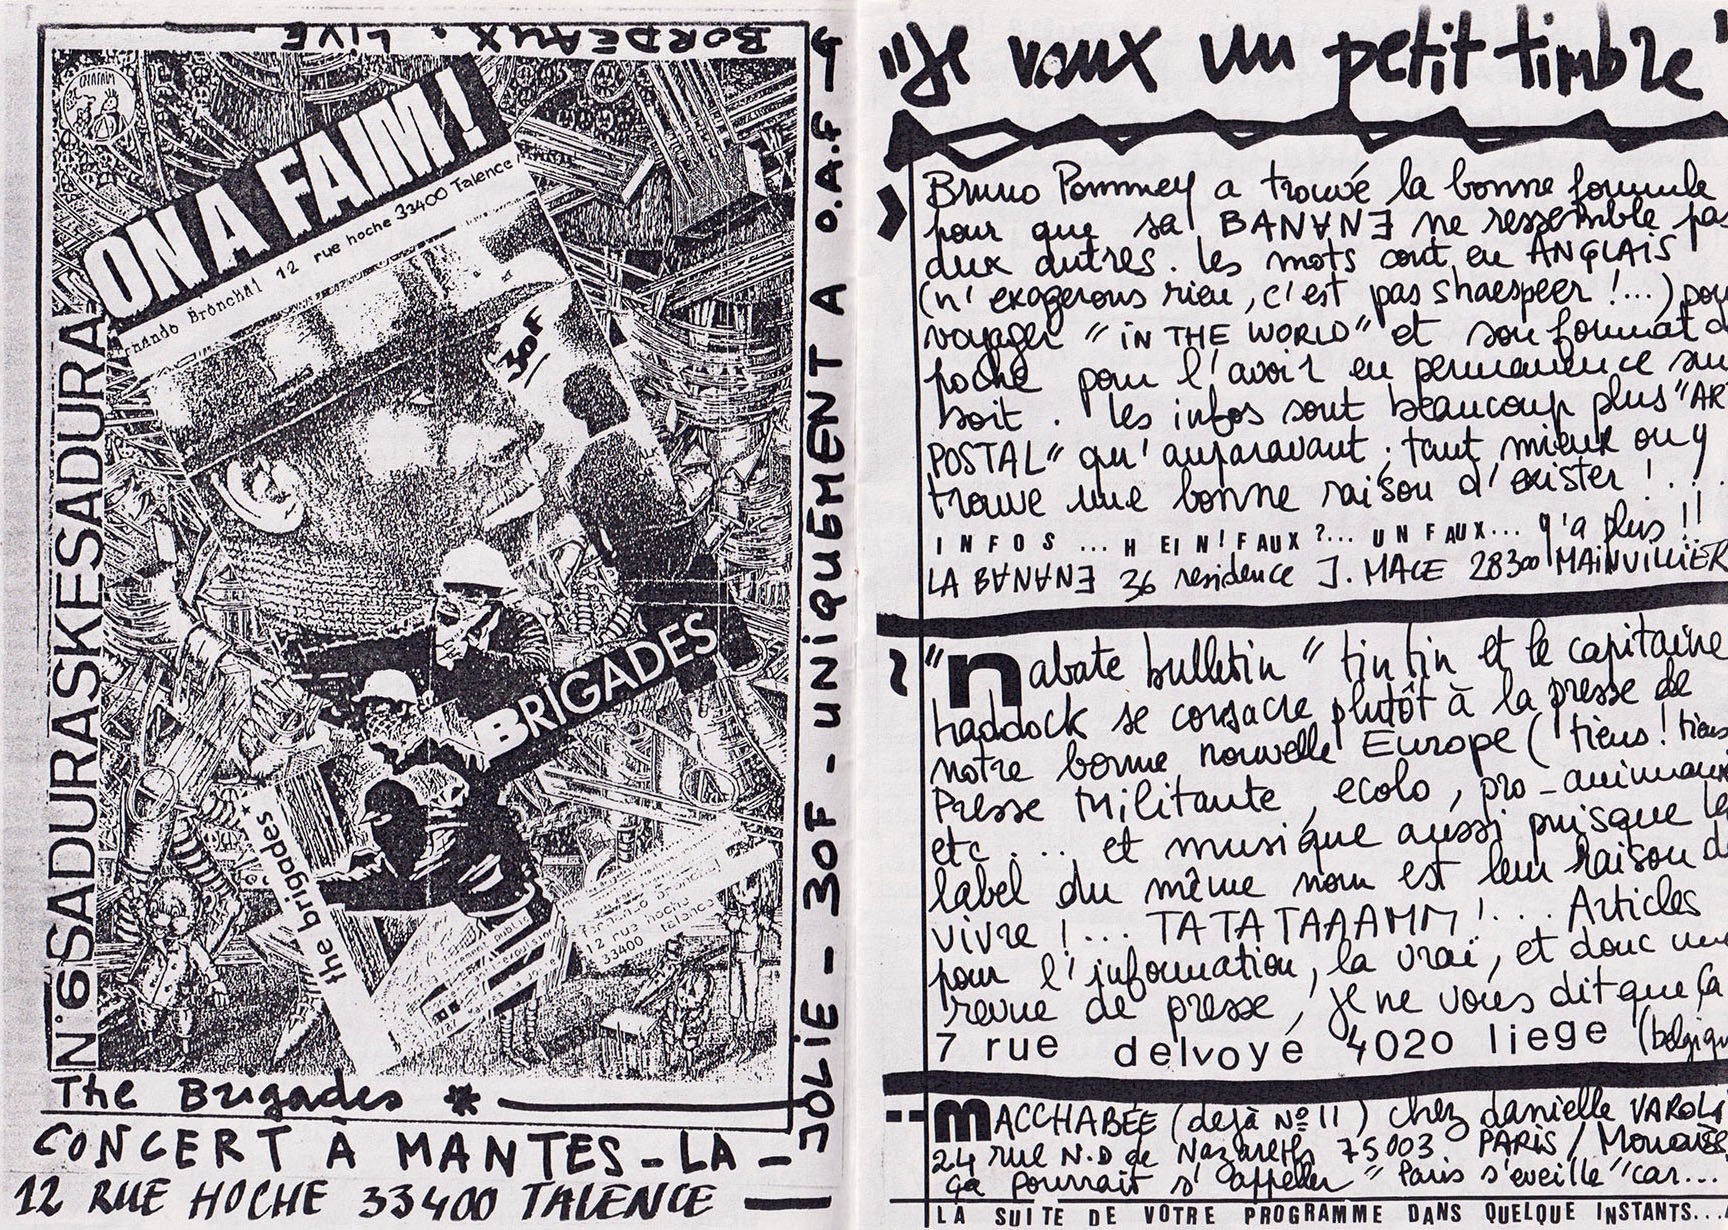 BORDEAUX. LIVE
ON A FAIM!
nando Bronchal 12 rue hoche 33400 Talence
30F
BRIGADES
the brigades
12 rue hoche
33400 talence
N°6 SADURASKESADURASKESADURA
The Brigades *
CONCERT À MANTES-LA-
JOLIE - 30F - UNIQUEMENT A O.A.F
12 RUE HOCHE 33400 TALENCE
"Je voux un petit timbre"
Bruno Pommey a trouvé la bonne formule
pour que sa BANANE ne ressemble pas
aux autres. les mots cont en ANGLAIS
(n'exagerons rien, c'est pas shaespeer !...) pou
voyager "IN THE WORLD" et son format d
poche pour l'avoir en permanence su
soit. les infos sont beaucoup plus "AR
POSTAL" qu'auparavant. tant mieux on y
trouve une bonne raison d'exister !...
INFOS ... HEIN! FAUX ?... UN FAUX... y'a plus !!
LA BANANE 36 residence J. MACE 28300 MAINVILLIER
"nabate bulletin" tintin et le capitaine
haddock se consacre plutôt à la presse de
notre bonne nouvelle Europe (tiens! tiens
Presse Militante, ecolo, pro-animaux
etc.... et musique aussi puisque le
label du même nom est leur raison de
vivre !... TATATAAAMM !... Articles
pour l'information, la vrai, et donc une
revue de presse, je ne vous dit que ça
7 rue delvoye 4020 liege (belgique
MACCHABÉE (dejà N°11) chez danielle VAROLI
24 rue N.D de Nazareth 75003 PARIS /
ça pourrait s'appeller "Paris s'eveille" car...
LA SUITE DE VOTRE PROGRAMME DANS QUELQUE INSTANTS...